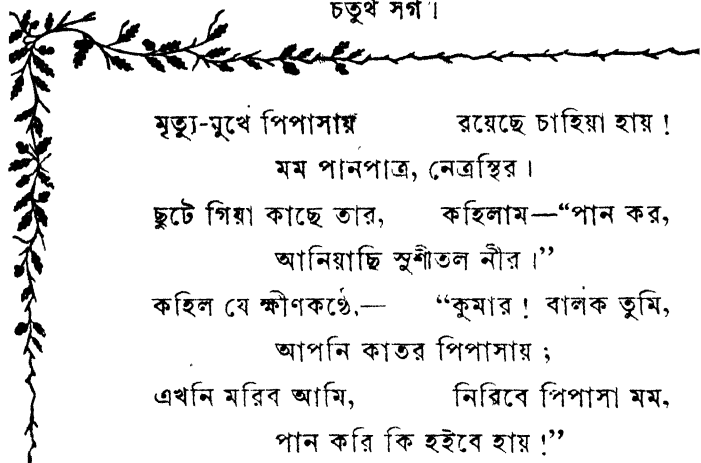 চতুর্থ সর্গ।
মৃত্যু-মুখে পিপাসায় রয়েছে চাহিয়া হায়!
মম পানপাত্র, নেত্রস্থির।
ছুটে গিয়া কাছে তার, কহিলাম—“পান কর,
আনিয়াছি সুশীতল নীর।”
কহিল যে ক্ষীণকণ্ঠে,— “কুমার! বালক তুমি,
আপনি কাতর পিপাসায়;
এখনি মরিব আমি, নিবিবে পিপাসা মম,
পান করি কি হইবে হায়!”